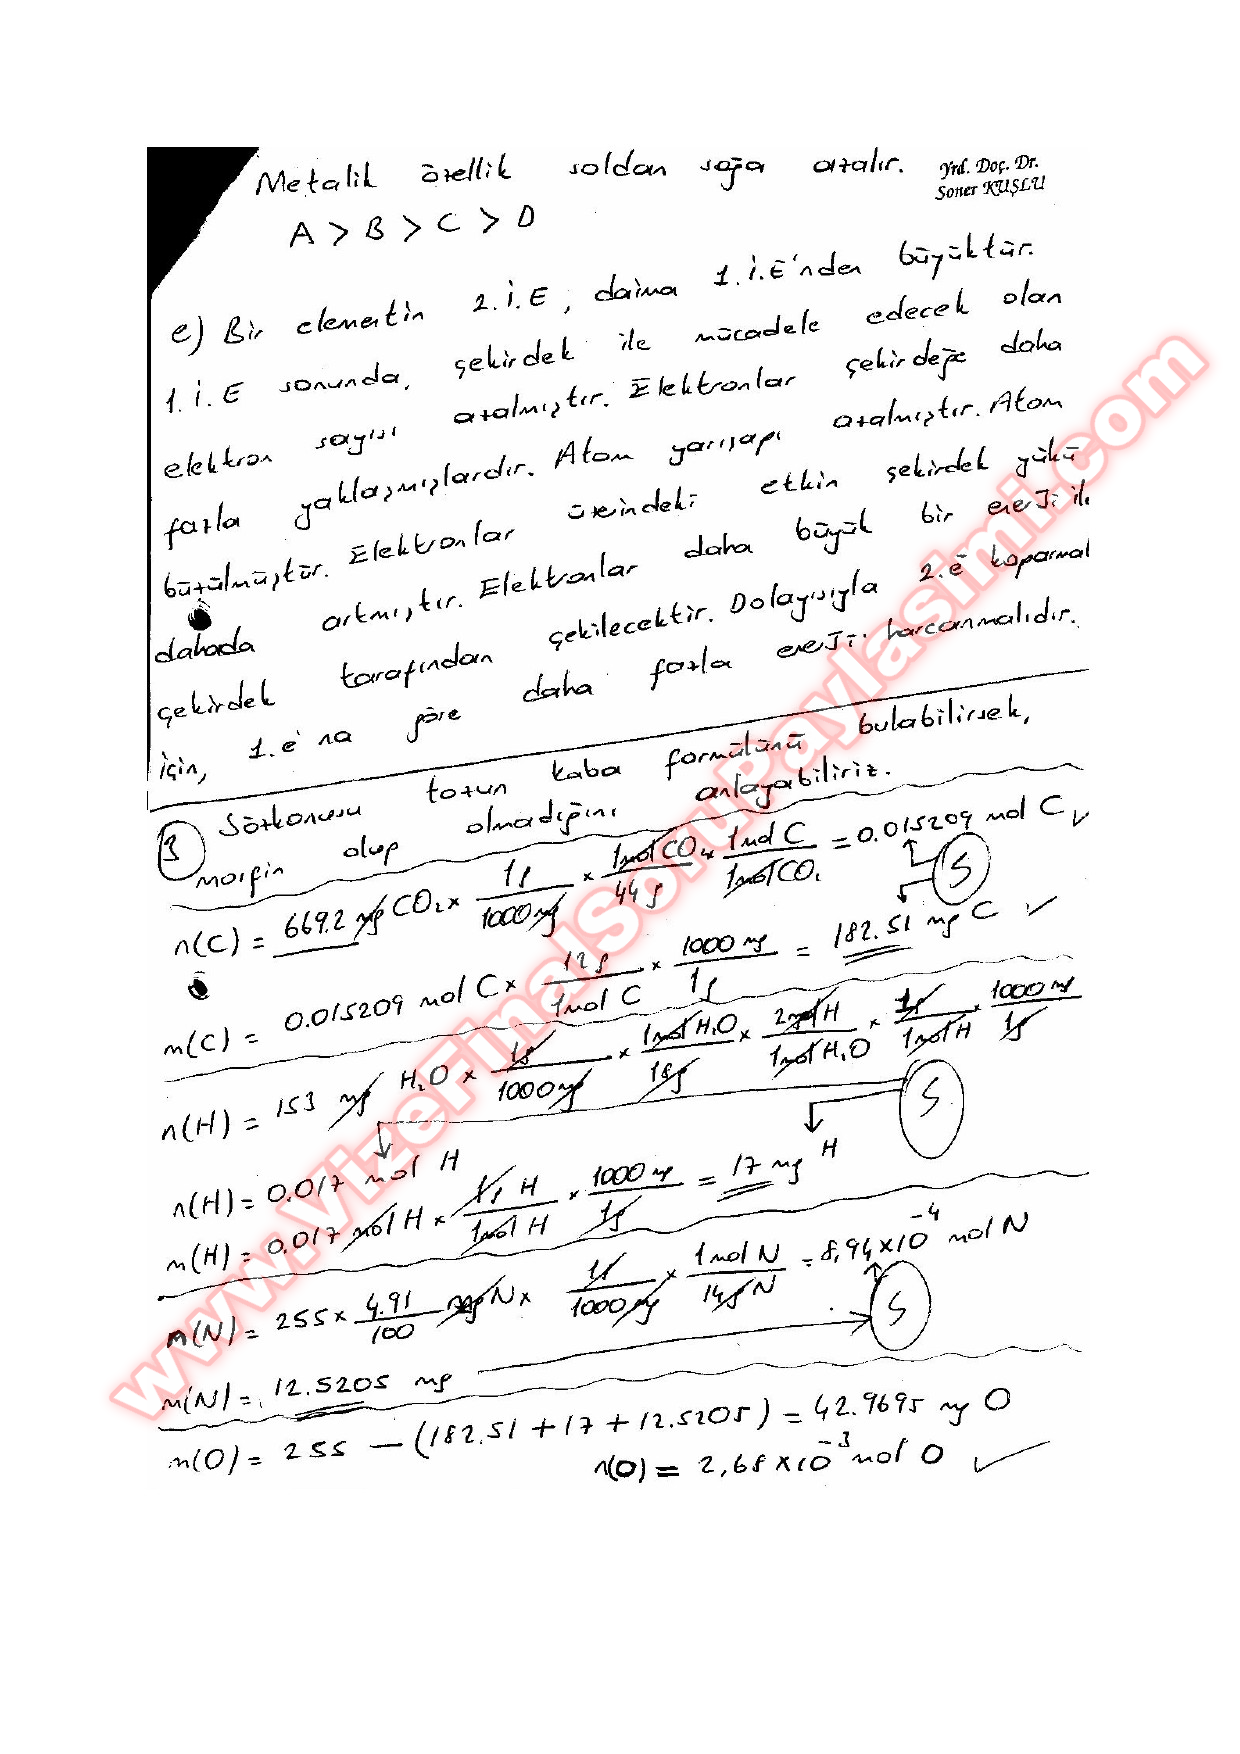 Metalik özellik soldan sağa azalır.
Yrd. Doç. Dr.
Soner KUŞLU
A > B > C > D
e) Bir elementin 2.İ.E, daima 1.İ.E'nden büyüktür.
1.İ.E sonunda, çekirdek ile mücadele edecek olan
elektron sayısı azalmıştır. Elektronlar çekirdeğe daha
fazla yaklaşmışlardır. Atom yarıçapı azalmıştır. Atom
büzülmüştür. Elektronlar üzerindeki etkin çekirdek yükü
dahada artmıştır. Elektronlar daha büyük bir enerji ile
çekirdek tarafından çekilecektir. Dolayısıyla 2.e koparmak
için, 1.e na göre daha fazla enerji harcanmalıdır.
3 Sözkonusu tozun kaba formülünü bulabilirsek,
morfin olup olmadığını anlayabiliriz.
n(C) = 669.2 mg CO2 x 1g/1000 mg x 1mol CO2/44 g x 1mol C/1mol CO2 = 0.015209 mol C ✓
S
m(C) = 0.015209 mol C x 12 g/1mol C x 1000 mg/1g = 182.51 mg C ✓
n(H) = 153 mg H2O x 1g/1000 mg x 1mol H2O/18g x 2mol H/1mol H2O x 1g/1mol H x 1000 mg/1g
S
n(H) = 0.017 mol H
m(H) = 0.017 mol H x 1g H/1mol H x 1000 mg/1g = 17 mg H
n(N) = 255 x 4.91/100 mg N x 1g/1000 mg x 1mol N/14g N = 8,94x10⁻⁴ mol N
S
m(N) = 12.5205 mg
m(O) = 255 - (182.51 + 17 + 12.5205) = 42.9695 mg O
n(O) = 2,68x10⁻³ mol O ✓
www.VizeFinalSoruPaylasimi.com